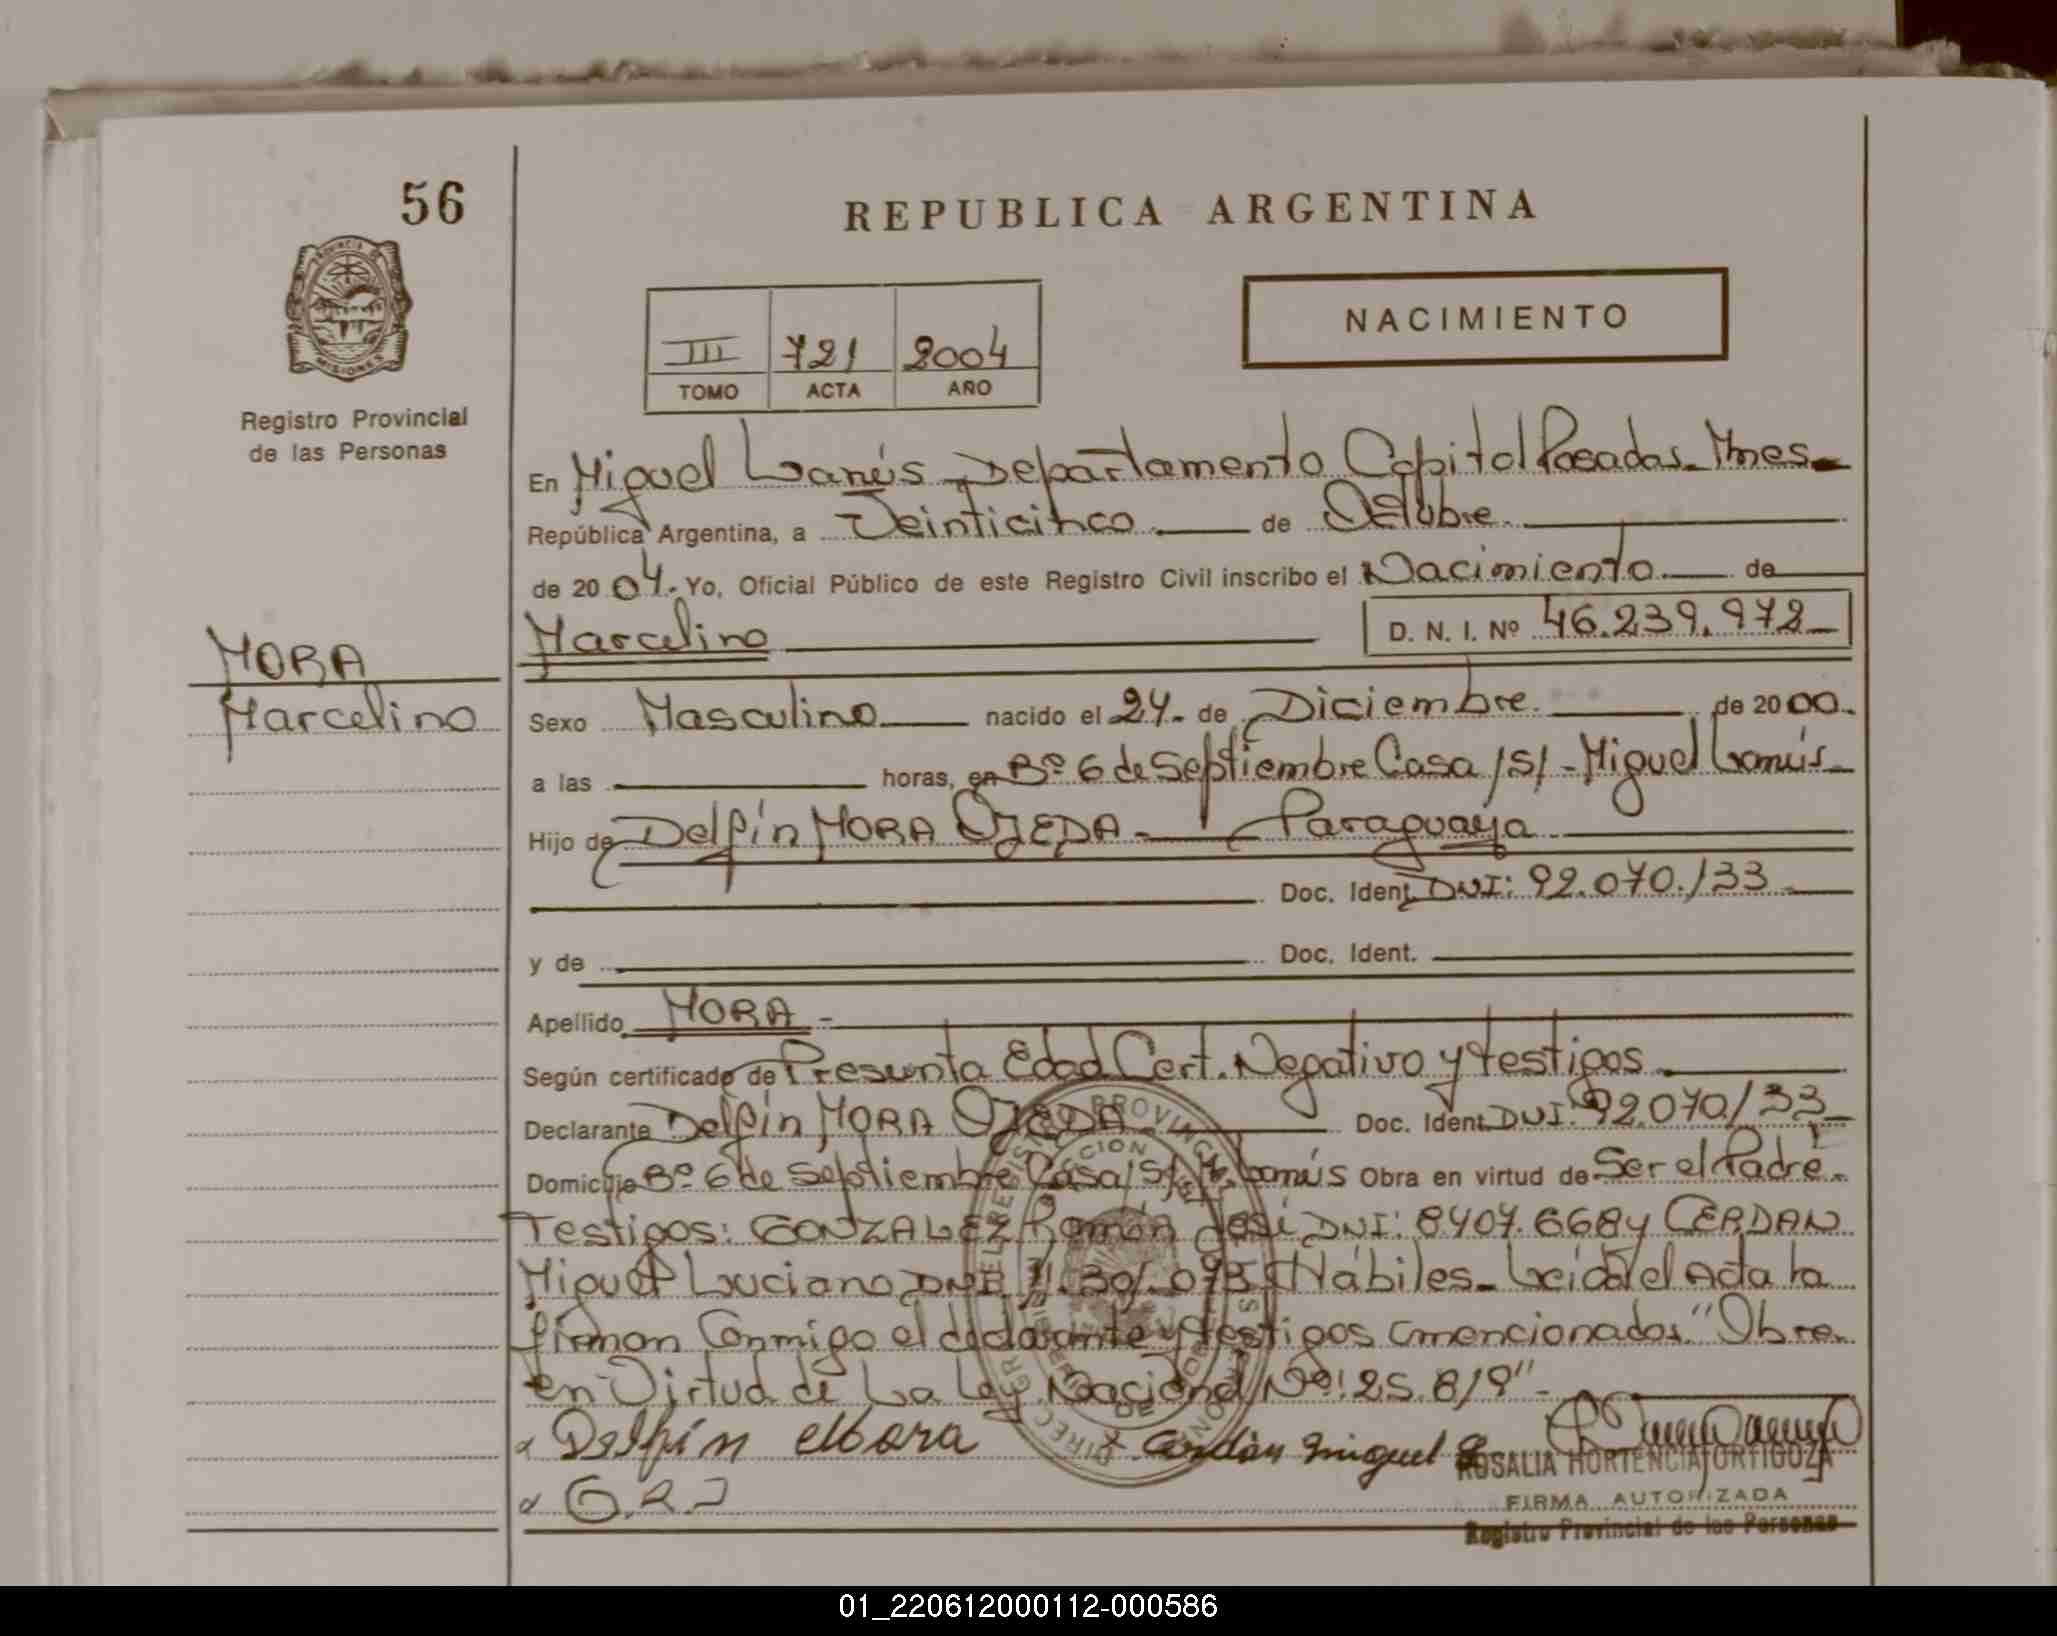 56
REPUBLICA ARGENTINA
PROVINCIA DE
MISIONES
Registro Provincial
de las Personas
III 721 2004
TOMO ACTA AÑO
NACIMIENTO
En Miguel Lanús Departamento Capital Posadas Mnes
República Argentina, a Veinticinco de Octubre
de 2004. Yo, Oficial Público de este Registro Civil inscribo el Nacimiento de
Marcelino D. N. I. Nº 46.239.972
MORA
Marcelino
Sexo Masculino nacido el 24 de Diciembre de 2000.
a las horas, en Bº 6 de Septiembre Casa /S/ - Miguel Lanús
Hijo de Delfín MORA OJEDA - Paraguaya
Doc. Ident. DNI: 92.070.133
y de Doc. Ident.
Apellido MORA -
Según certificado de Presunta Edad Cert. Negativo y testigos
Declarante Delfín MORA OJEDA Doc. Ident. DNI: 92.070.133
Domicilio Bº 6 de Septiembre Casa /S/ M. Lanús Obra en virtud de Ser el Padre.
Testigos: GONZALEZ Ramón José DNI: 8407.668 y CERDAN
Miguel Luciano DNI 11.301.073 Hábiles - Leida el Acta la
firman Conmigo el declarante y testigos mencionados. "Obre
en Virtud de La Ley Nacional Nº: 25.819" -
Delfín Mora Cerdán Miguel
G.R.J
ROSALIA HORTENCIA ORTIGOZA
FIRMA AUTORIZADA
Registro Provincial de las Personas
01_220612000112-000586